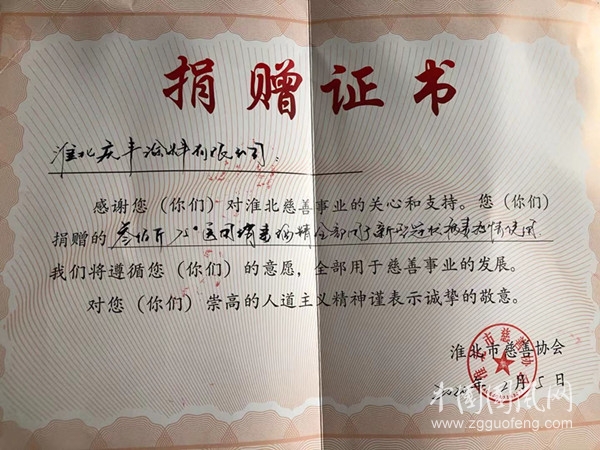 捐赠证书
淮北庆丰涂料有限公司：
感谢您（你们）对淮北慈善事业的关心和支持。您（你们）
捐赠的 叁佰斤75°医用消毒酒精全部用于新型冠状病毒疫情使用
我们将遵循您（你们）的意愿，全部用于慈善事业的发展。
对您（你们）崇高的人道主义精神谨表示诚挚的敬意。
淮北市慈善协会
2020年 月5日
中国国风网
www.zgguofeng.com